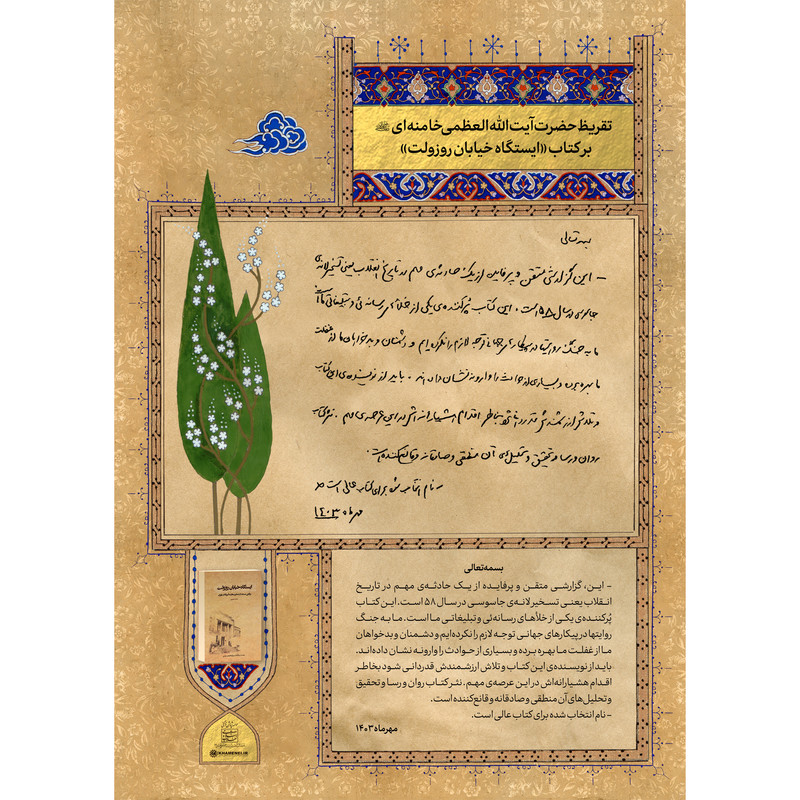 تقریظ حضرت آیت الله العظمی خامنه‌ای
بر کتاب «ایستگاه خیابان روزولت»
بسمه تعالی
– این گزارشی متقن و پرفایده از یک حادثه‌ی مهم در تاریخ انقلاب یعنی تسخیر لانه‌ی
جاسوسی در سال ۵۸ است. این کتاب پُرکننده‌ی یکی از خلأهای رسانه‌ئی و تبلیغاتی ما است
ما به جنگ روایتها در پیکارهای جهانی توجه لازم را نکرده‌ایم و دشمنان و بدخواهان ما از غفلت
ما بهره برده و بسیاری از حوادث را وارونه نشان داده‌اند. باید از نویسنده‌ی این کتاب
و تلاش ارزشمندش قدردانی شود بخاطر اقدام هشیارانه‌اش در این عرصه‌ی مهم. نثر کتاب
روان و رسا و تحقیق و تحلیل‌های آن منطقی و صادقانه و قانع‌کننده است.
– نام انتخاب شده برای کتاب عالی است
مهرماه ۱۴۰۳
بسمه‌تعالی
- این، گزارشی متقن و پرفایده از یک حادثه‌ی مهم در تاریخ
انقلاب یعنی تسخیر لانه‌ی جاسوسی در سال ۵۸ است. این کتاب
پُرکننده‌ی یکی از خلأهای رسانه‌ئی و تبلیغاتی ما است. ما به جنگ
روایتها در پیکارهای جهانی توجه لازم را نکرده‌ایم و دشمنان و بدخواهان
ما از غفلت ما بهره برده و بسیاری از حوادث را وارونه نشان داده‌اند.
باید از نویسنده‌ی این کتاب و تلاش ارزشمندش قدردانی شود بخاطر
اقدام هشیارانه‌اش در این عرصه‌ی مهم. نثر کتاب روان و رسا و تحقیق
و تحلیل‌های آن منطقی و صادقانه و قانع‌کننده است.
- نام انتخاب شده برای کتاب عالی است.
مهرماه ۱۴۰۳
ایستگاه خیابان روزولت
KHAMENEI.IR